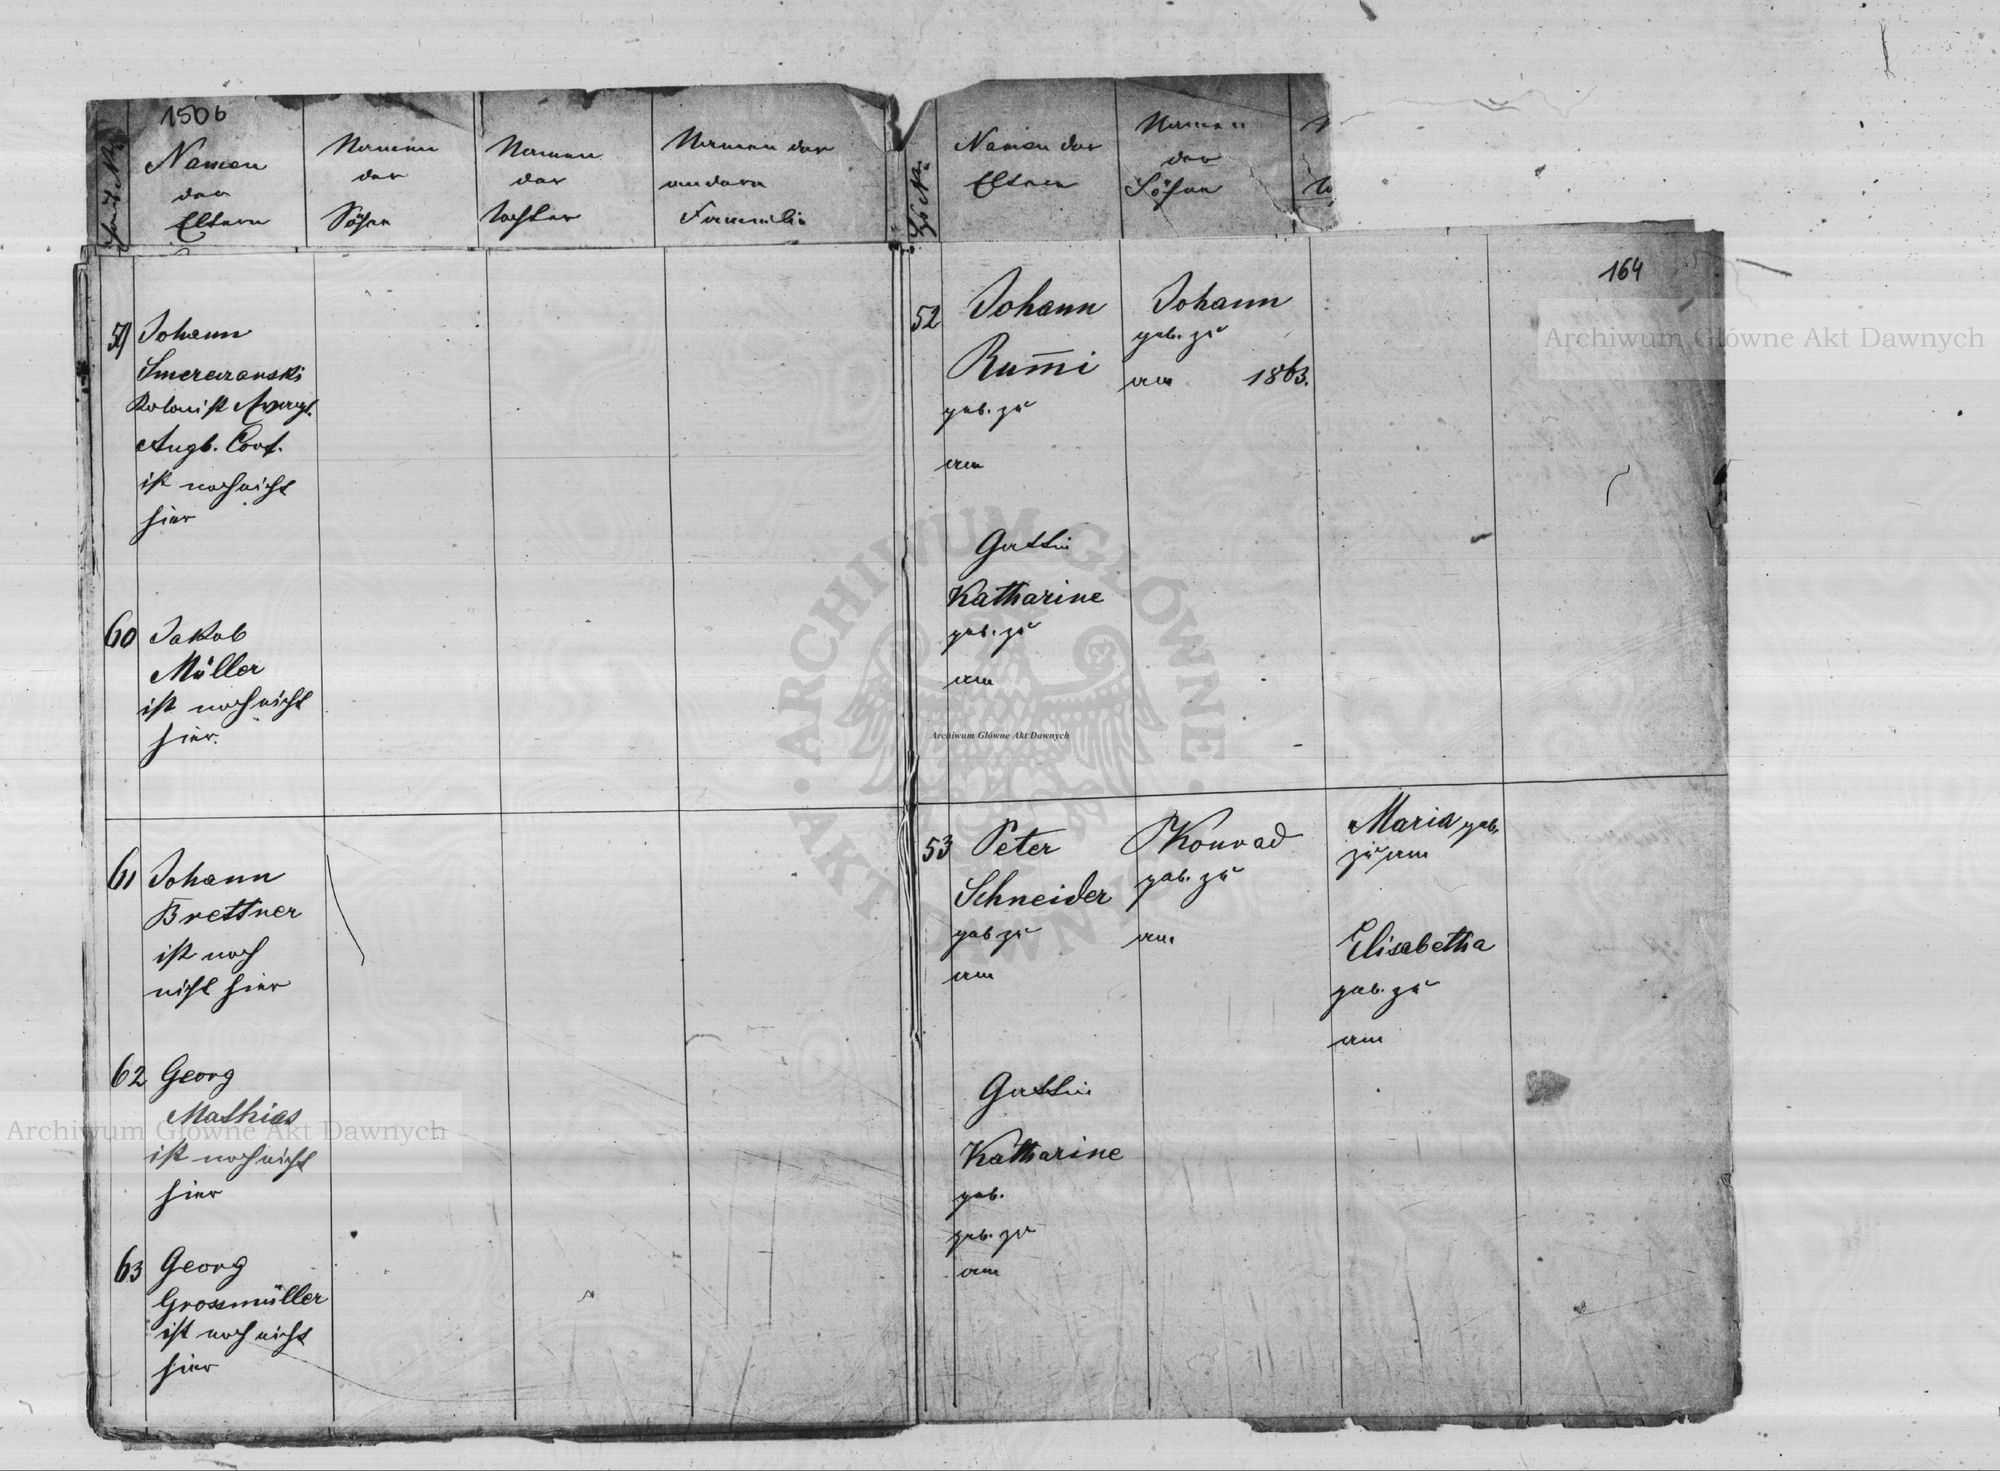 1506
Namen
der
Eltern
Namen
der
Söhne
Namen
der
Töchter
Namen der
andern
Familie
Namen der
Eltern
Namen
der
Söhne
164
59 Johann
Kolonist
Augb. Conf.
ist noch nicht
hier
60 Jakob
Müller
ist noch nicht
hier.
61 Johann
Brettner
ist noch
nicht hier
62 Georg
Mathias
ist noch nicht
hier
63 Georg
Grossmüller
ist noch nicht
hier
52 Johann
Rum̅i
geb. zu
am
Gattin
Katharine
geb. zu
am
Johann
geb. zu
am 1863.
53 Peter
Schneider
geb zu
am
Gattin
Katharine
geb.
geb. zu
am
Konrad
geb. zu
am
Maria geb.
zu am
Elisabetha
geb. zu
am
Archiwum Główne Akt Dawnych
Archiwum Główne Akt Dawnych
Archiwum Główne Akt Dawnych
ARCHIWUM GŁÓWNE · AKT DAWNYCH ·